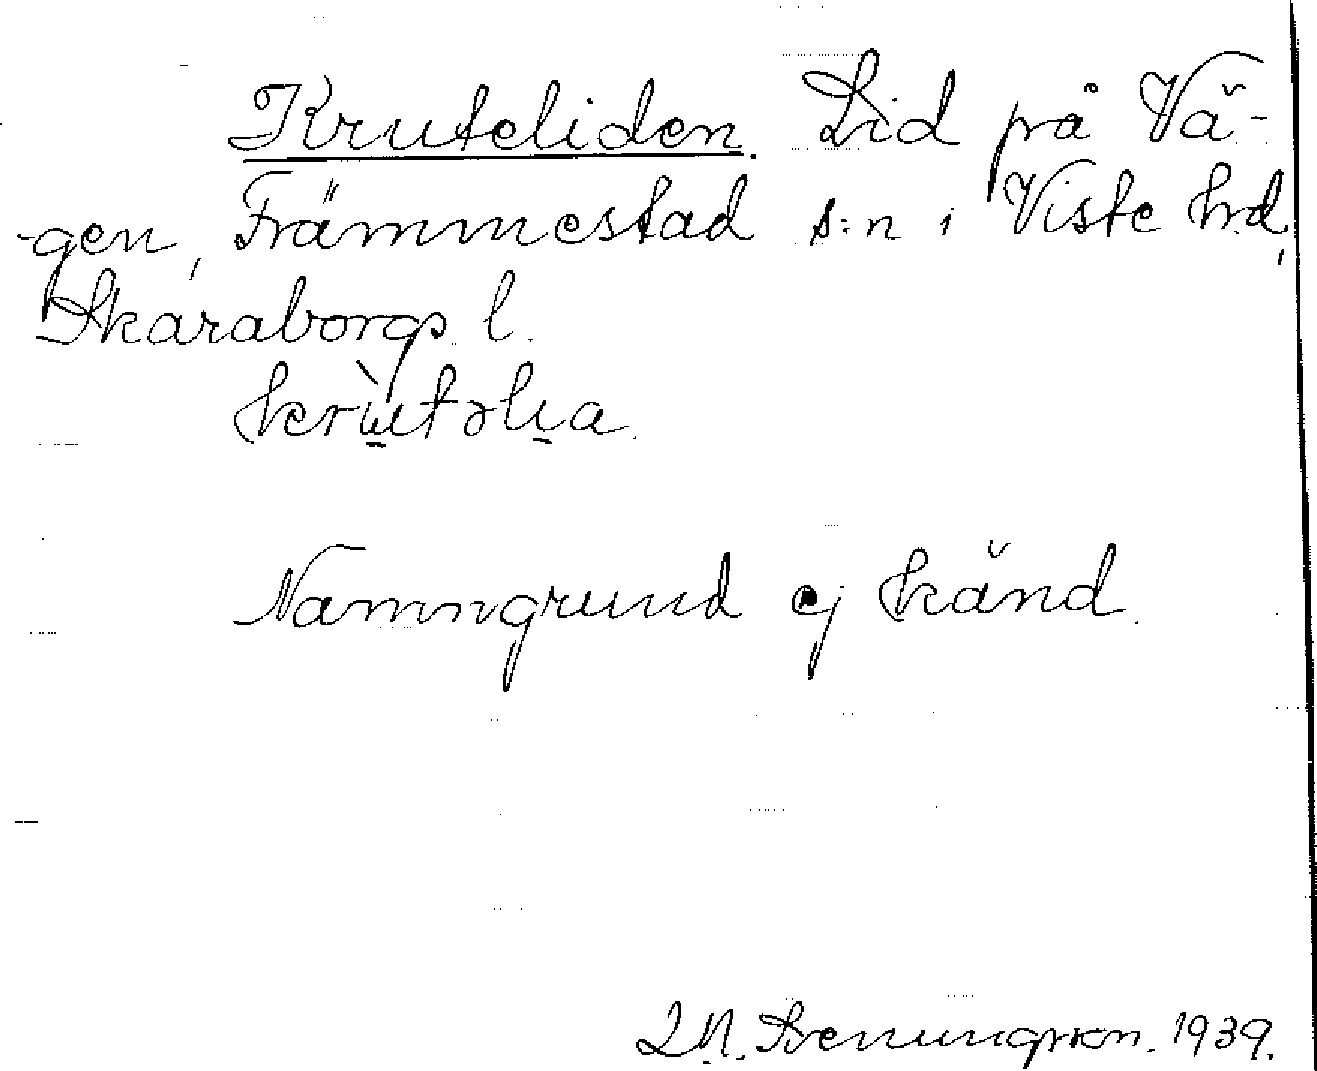 Kruteliden. Lid på Vä-
-gen, Främmestad s:n i Viste hrd,
Skaraborgs l.
krùtəlia.
Namngrund ej känd.
1939.